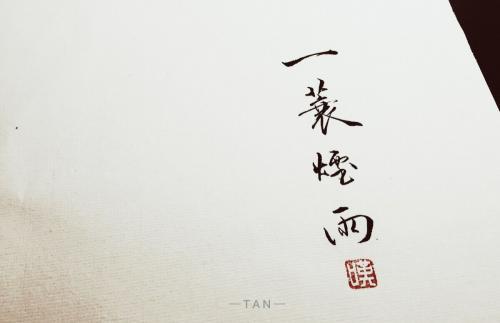 一蓑煙雨
—TAN—